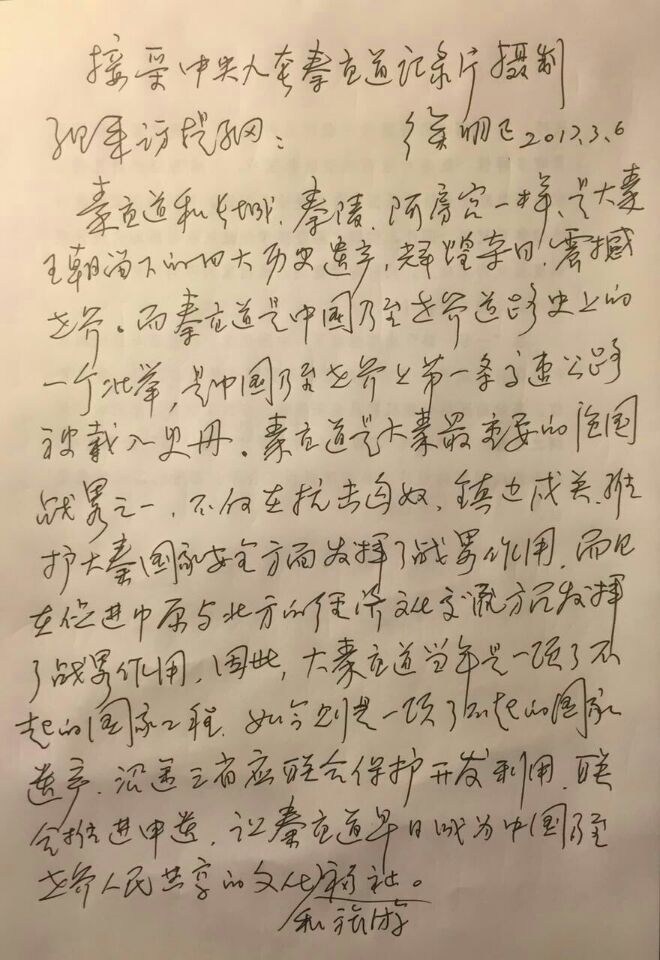 接受中央人台秦直道记录片摄制
组采访提纲：徐明正2017.3.6
秦直道和长城、秦陵、阿房宫一样、是大秦
王朝留下的四大历史遗产，辉煌幸日、震撼
世界。而秦直道是中国乃至世界道路史上的
一个壮举，是中国乃至世界上第一条高速公路
被载入史册。秦直道是大秦最重要的强国
战略之一，不仅在抗击匈奴、镇边戍关、维
护大秦国家安全方面发挥了战略作用，而且
在促进中原与北方的经济文化交流方面发挥
了战略作用，因此，大秦直道当年是一项了不
起的国家工程，如今则是一项了不起的国家
遗产，沿途三省应联合保护开发利用，联
合推进申遗，让秦直道早日成为中国乃至
世界人民共享的文化福祉。
和旅游